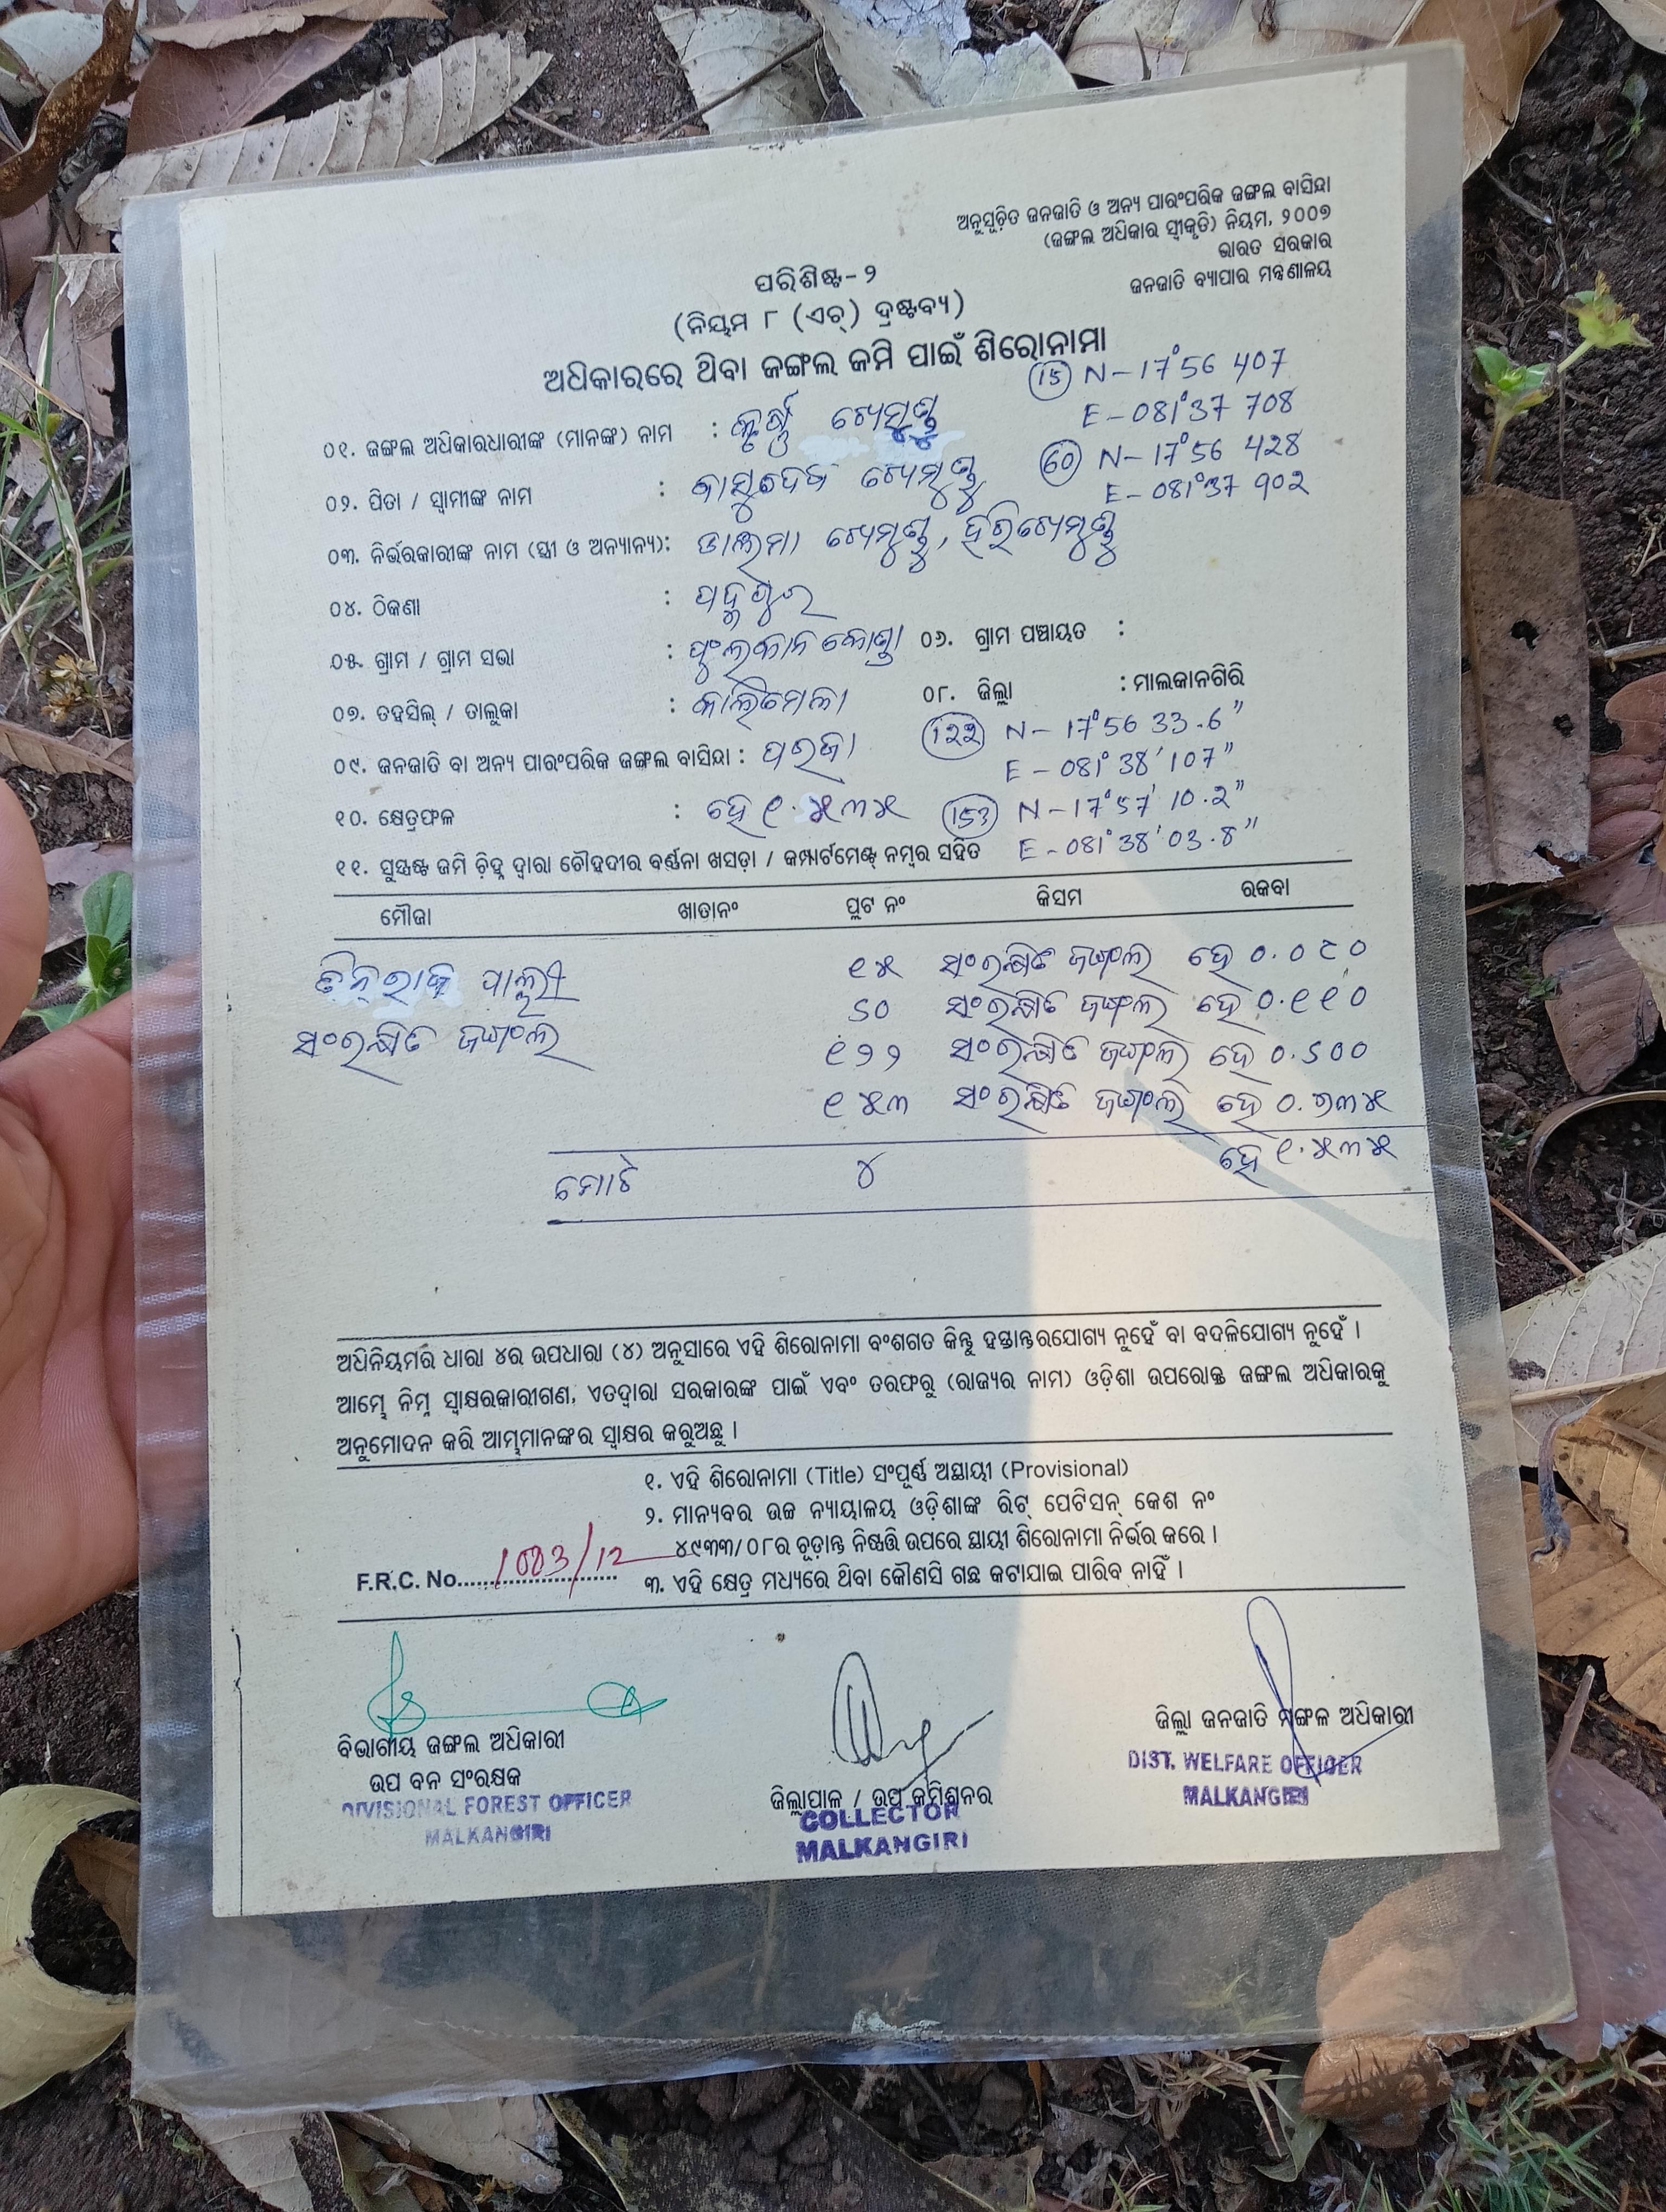 ଅନୁସୂଚିତ ଜନଜାତି ଓ ଅନ୍ୟ ପାରଂପରିକ ଜଙ୍ଗଲ ବାସିନ୍ଦା
(ଜଙ୍ଗଲ ଅଧିକାର ସ୍ୱୀକୃତି) ନିୟମ, ୨୦୦୭
ଭାରତ ସରକାର
ଜନଜାତି ବ୍ୟାପାର ମନ୍ତ୍ରଣାଳୟ
ପରିଶିଷ୍ଟ-୨
(ନିୟମ ୮ (ଏଚ୍) ଦ୍ରଷ୍ଟବ୍ୟ)
ଅଧିକାରରେ ଥିବା ଜଙ୍ଗଲ ଜମି ପାଇଁ ଶିରୋନାମା
(15) N-17°56 407
E-081°37 708
୦୧. ଜଙ୍ଗଲ ଅଧିକାରଧାରୀଙ୍କ (ମାନଙ୍କ) ନାମ :
(60) N-17°56 428
E-081°37 902
୦୨. ପିତା / ସ୍ୱାମୀଙ୍କ ନାମ :
୦୩. ନିର୍ଭରକାରୀଙ୍କ ନାମ (ସ୍ତ୍ରୀ ଓ ଅନ୍ୟାନ୍ୟ):
୦୪. ଠିକଣା :
୦୫. ଗ୍ରାମ / ଗ୍ରାମ ସଭା : ୦୬. ଗ୍ରାମ ପଞ୍ଚାୟତ :
୦୭. ତହସିଲ୍ / ତାଲୁକା : କାଲିମେଳା ୦୮. ଜିଲ୍ଲା : ମାଲକାନଗିରି
(122) N-17°56 33.6"
E-081°38'107"
୦୯. ଜନଜାତି ବା ଅନ୍ୟ ପାରଂପରିକ ଜଙ୍ଗଲ ବାସିନ୍ଦା : ପରଜା
(153) N-17°57' 10.2"
E-081°38'03.8"
୧୦. କ୍ଷେତ୍ରଫଳ : ହେ ୧.୫୩୫
୧୧. ସୁସ୍ପଷ୍ଟ ଜମି ଚିହ୍ନ ଦ୍ୱାରା ଚୌହଦୀର ବର୍ଣ୍ଣନା ଖସଡ଼ା / କମ୍ପାର୍ଟମେଣ୍ଟ୍ ନମ୍ବର ସହିତ
ମୌଜା ଖାତାନଂ ପ୍ଲଟ ନଂ କିସମ ରକବା
ପାଲ୍ଲୀ ୧୫ ସଂରକ୍ଷିତ ଜଙ୍ଗଲ ହେ ୦.୦୯୦
ସଂରକ୍ଷିତ ଜଙ୍ଗଲ ୬୦ ସଂରକ୍ଷିତ ଜଙ୍ଗଲ ହେ ୦.୧୧୦
୧୨୨ ସଂରକ୍ଷିତ ଜଙ୍ଗଲ ହେ ୦.୬୦୦
୧୫୩ ସଂରକ୍ଷିତ ଜଙ୍ଗଲ ହେ ୦.୭୩୫
ମୋଟ ୪ ହେ ୧.୫୩୫
ଅଧିନିୟମର ଧାରା ୪ର ଉପଧାରା (୪) ଅନୁସାରେ ଏହି ଶିରୋନାମା ବଂଶଗତ କିନ୍ତୁ ହସ୍ତାନ୍ତରଯୋଗ୍ୟ ନୁହେଁ ବା ବଦଳିଯୋଗ୍ୟ ନୁହେଁ ।
ଆମ୍ଭେ ନିମ୍ନ ସ୍ୱାକ୍ଷରକାରୀଗଣ, ଏତଦ୍ୱାରା ସରକାରଙ୍କ ପାଇଁ ଏବଂ ତରଫରୁ (ରାଜ୍ୟର ନାମ) ଓଡ଼ିଶା ଉପରୋକ୍ତ ଜଙ୍ଗଲ ଅଧିକାରକୁ
ଅନୁମୋଦନ କରି ଆମ୍ଭମାନଙ୍କର ସ୍ୱାକ୍ଷର କରୁଅଛୁ ।
୧. ଏହି ଶିରୋନାମା (Title) ସଂପୂର୍ଣ୍ଣ ଅସ୍ଥାୟୀ (Provisional)
୨. ମାନ୍ୟବର ଉଚ୍ଚ ନ୍ୟାୟାଳୟ ଓଡ଼ିଶାଙ୍କ ରିଟ୍ ପେଟିସନ୍ କେଶ ନଂ
୪୯୩୩/୦୮ର ଚୂଡ଼ାନ୍ତ ନିଷ୍ପତ୍ତି ଉପରେ ସ୍ଥାୟୀ ଶିରୋନାମା ନିର୍ଭର କରେ ।
F.R.C. No.
୩. ଏହି କ୍ଷେତ୍ର ମଧ୍ୟରେ ଥିବା କୌଣସି ଗଛ କଟାଯାଇ ପାରିବ ନାହିଁ ।
ବିଭାଗୀୟ ଜଙ୍ଗଲ ଅଧିକାରୀ
ଉପ ବନ ସଂରକ୍ଷକ
DIVISIONAL FOREST OFFICER
MALKANGIRI
ଜିଲ୍ଲାପାଳ / ଉପ କମିଶନର
COLLECTOR
MALKANGIRI
ଜିଲ୍ଲା ଜନଜାତି ମଙ୍ଗଳ ଅଧିକାରୀ
DIST. WELFARE OFFICER
MALKANGIRI